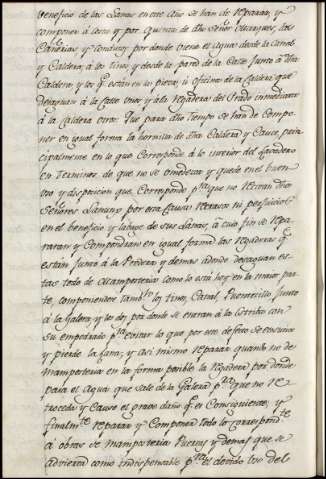 beneficio de las Lanas en este Año se han de reparar, y
componer á costa y por quenta de dho Señor Marques, las
Cañerias, y Conducto por donde viene el agua desde la
y Caldera, á los tinos, y desde la pared de la Calle junto á dha
Caldera, y los qe. están en la pieza, ú oficina de la Caldera que
desaguan á la Calle vnos, y á la regadera del Prado inmediato
á la Caldera otro: Que para dho tiempo se han de compo-
ner en igual forma la hornilla de dha Caldera y Cauce, prin-
cipalmente en lo que corresponde á lo interior del Lavadero
en terminos de que no se y quede en el buen
vso y disposicion que corresponde pa. que no tengan dhos
Señores por esta causa retraso ni perjuicio
en el beneficio y labaje de sus Lanas, á cuio fin se repa-
raran y compondran en igual forma las regaderas qe.
están junto á la Pradera y demas adonde desaguan es-
tas todo de mamposteria como lo está hoy en la maior par-
te, componiendose tambn. los tinos, Canal, Puentecillo junto
á la Galera, y los dos por donde se entran á la
su empedrado pa. evitar lo que por este defecto se ensucia
y pierde la Lana; y asi mismo reparar quando no de
Mamposteria en la forma posible la Regadera por donde
pasa el Agua que sale de la Galera pa. que no re-
troceda y cause el grave daño qe. es consiguiente, y
finalmte. reparar y componer todo lo correspondte.
á obras de Mamposteria Puertas y demas que se
advierta como indispensable pa. el devido vso del